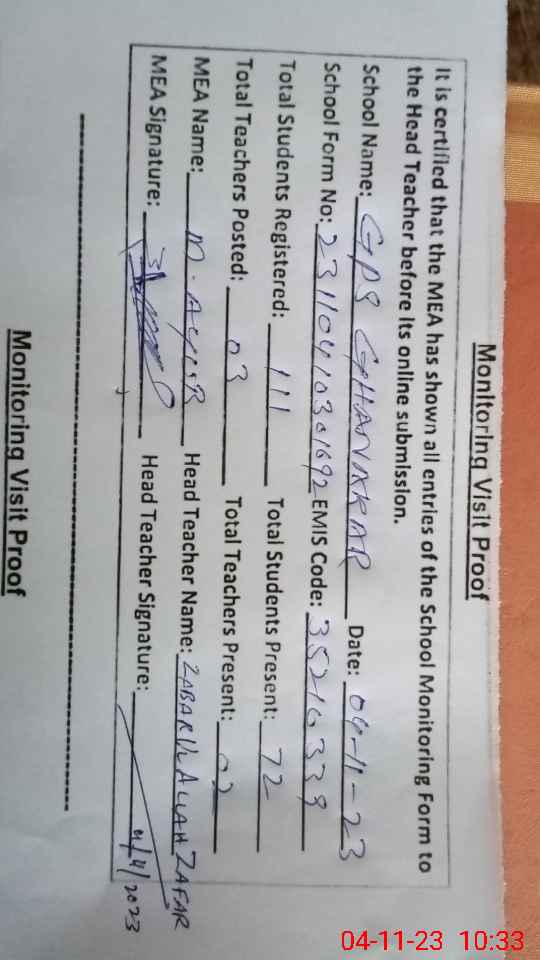 Monitoring Visit Proof
It is certified that the MEA has shown all entries of the School Monitoring Form to
the Head Teacher before its online submission.
School Name: GPS GHANAKAR Date: 04-11-23
School Form No: 23110410301692 EMIS Code: 35210339
Total Students Registered: 111 Total Students Present: 72
Total Teachers Posted: 03 Total Teachers Present: 02
MEA Name: M. Head Teacher Name: ZABARULALLAH ZAFAR
MEA Signature: Head Teacher Signature: 4/11/2023
Monitoring Visit Proof
04-11-23 10:33